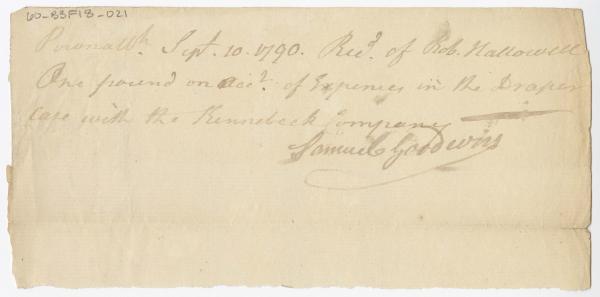 60-B3F18-021
Pownalbh. Sept. 10. 1790. Recd. of Rob. Hallowell
One pound on acct. of Expences in the Draper
case with the Kennebeck Company
Samuel Goodwin